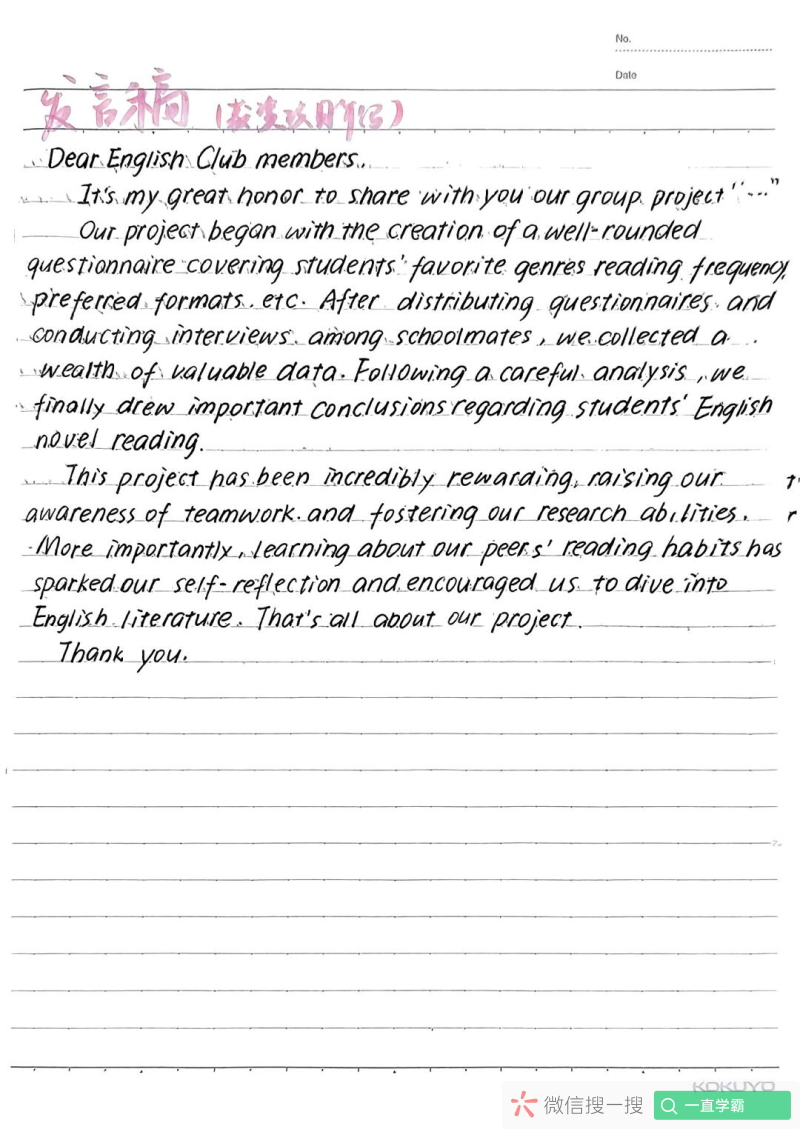 No.
Date
发言稿（获奖项目介绍）
Dear English Club members,
It's my great honor to share with you our group project "..."
Our project began with the creation of a well-rounded
questionnaire covering students' favorite genres reading frequency,
preferred formats. etc. After distributing questionnaires and
conducting interviews among schoolmates, we collected a
wealth of valuable data. Following a careful analysis, we
finally drew important conclusions regarding students' English
novel reading.
This project has been incredibly rewarding, raising our
awareness of teamwork and fostering our research abilities.
More importantly, learning about our peers' reading habits has
sparked our self-reflection and encouraged us to dive into
English literature. That's all about our project.
Thank you.
KOKUYO
微信搜一搜 一直学霸